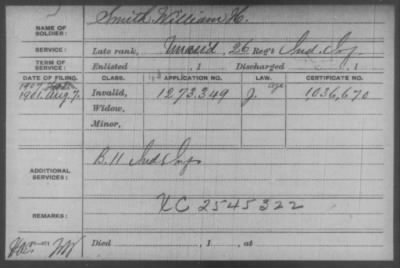 NAME OF SOLDIER: Smith, William H.
SERVICE: Late rank, Unasid, 26 Reg't Ind. Inf.
TERM OF SERVICE: Enlisted , 1 Discharged , 1
DATE OF FILING. CLASS. APPLICATION NO. LAW. CERTIFICATE NO.
1901, Aug. 7. Invalid, 1273.349 J. 1036,670
Widow,
Minor,
ADDITIONAL SERVICES: B. 11 Ind. Inf.
REMARKS: XC 2545322
Died , 1 , at